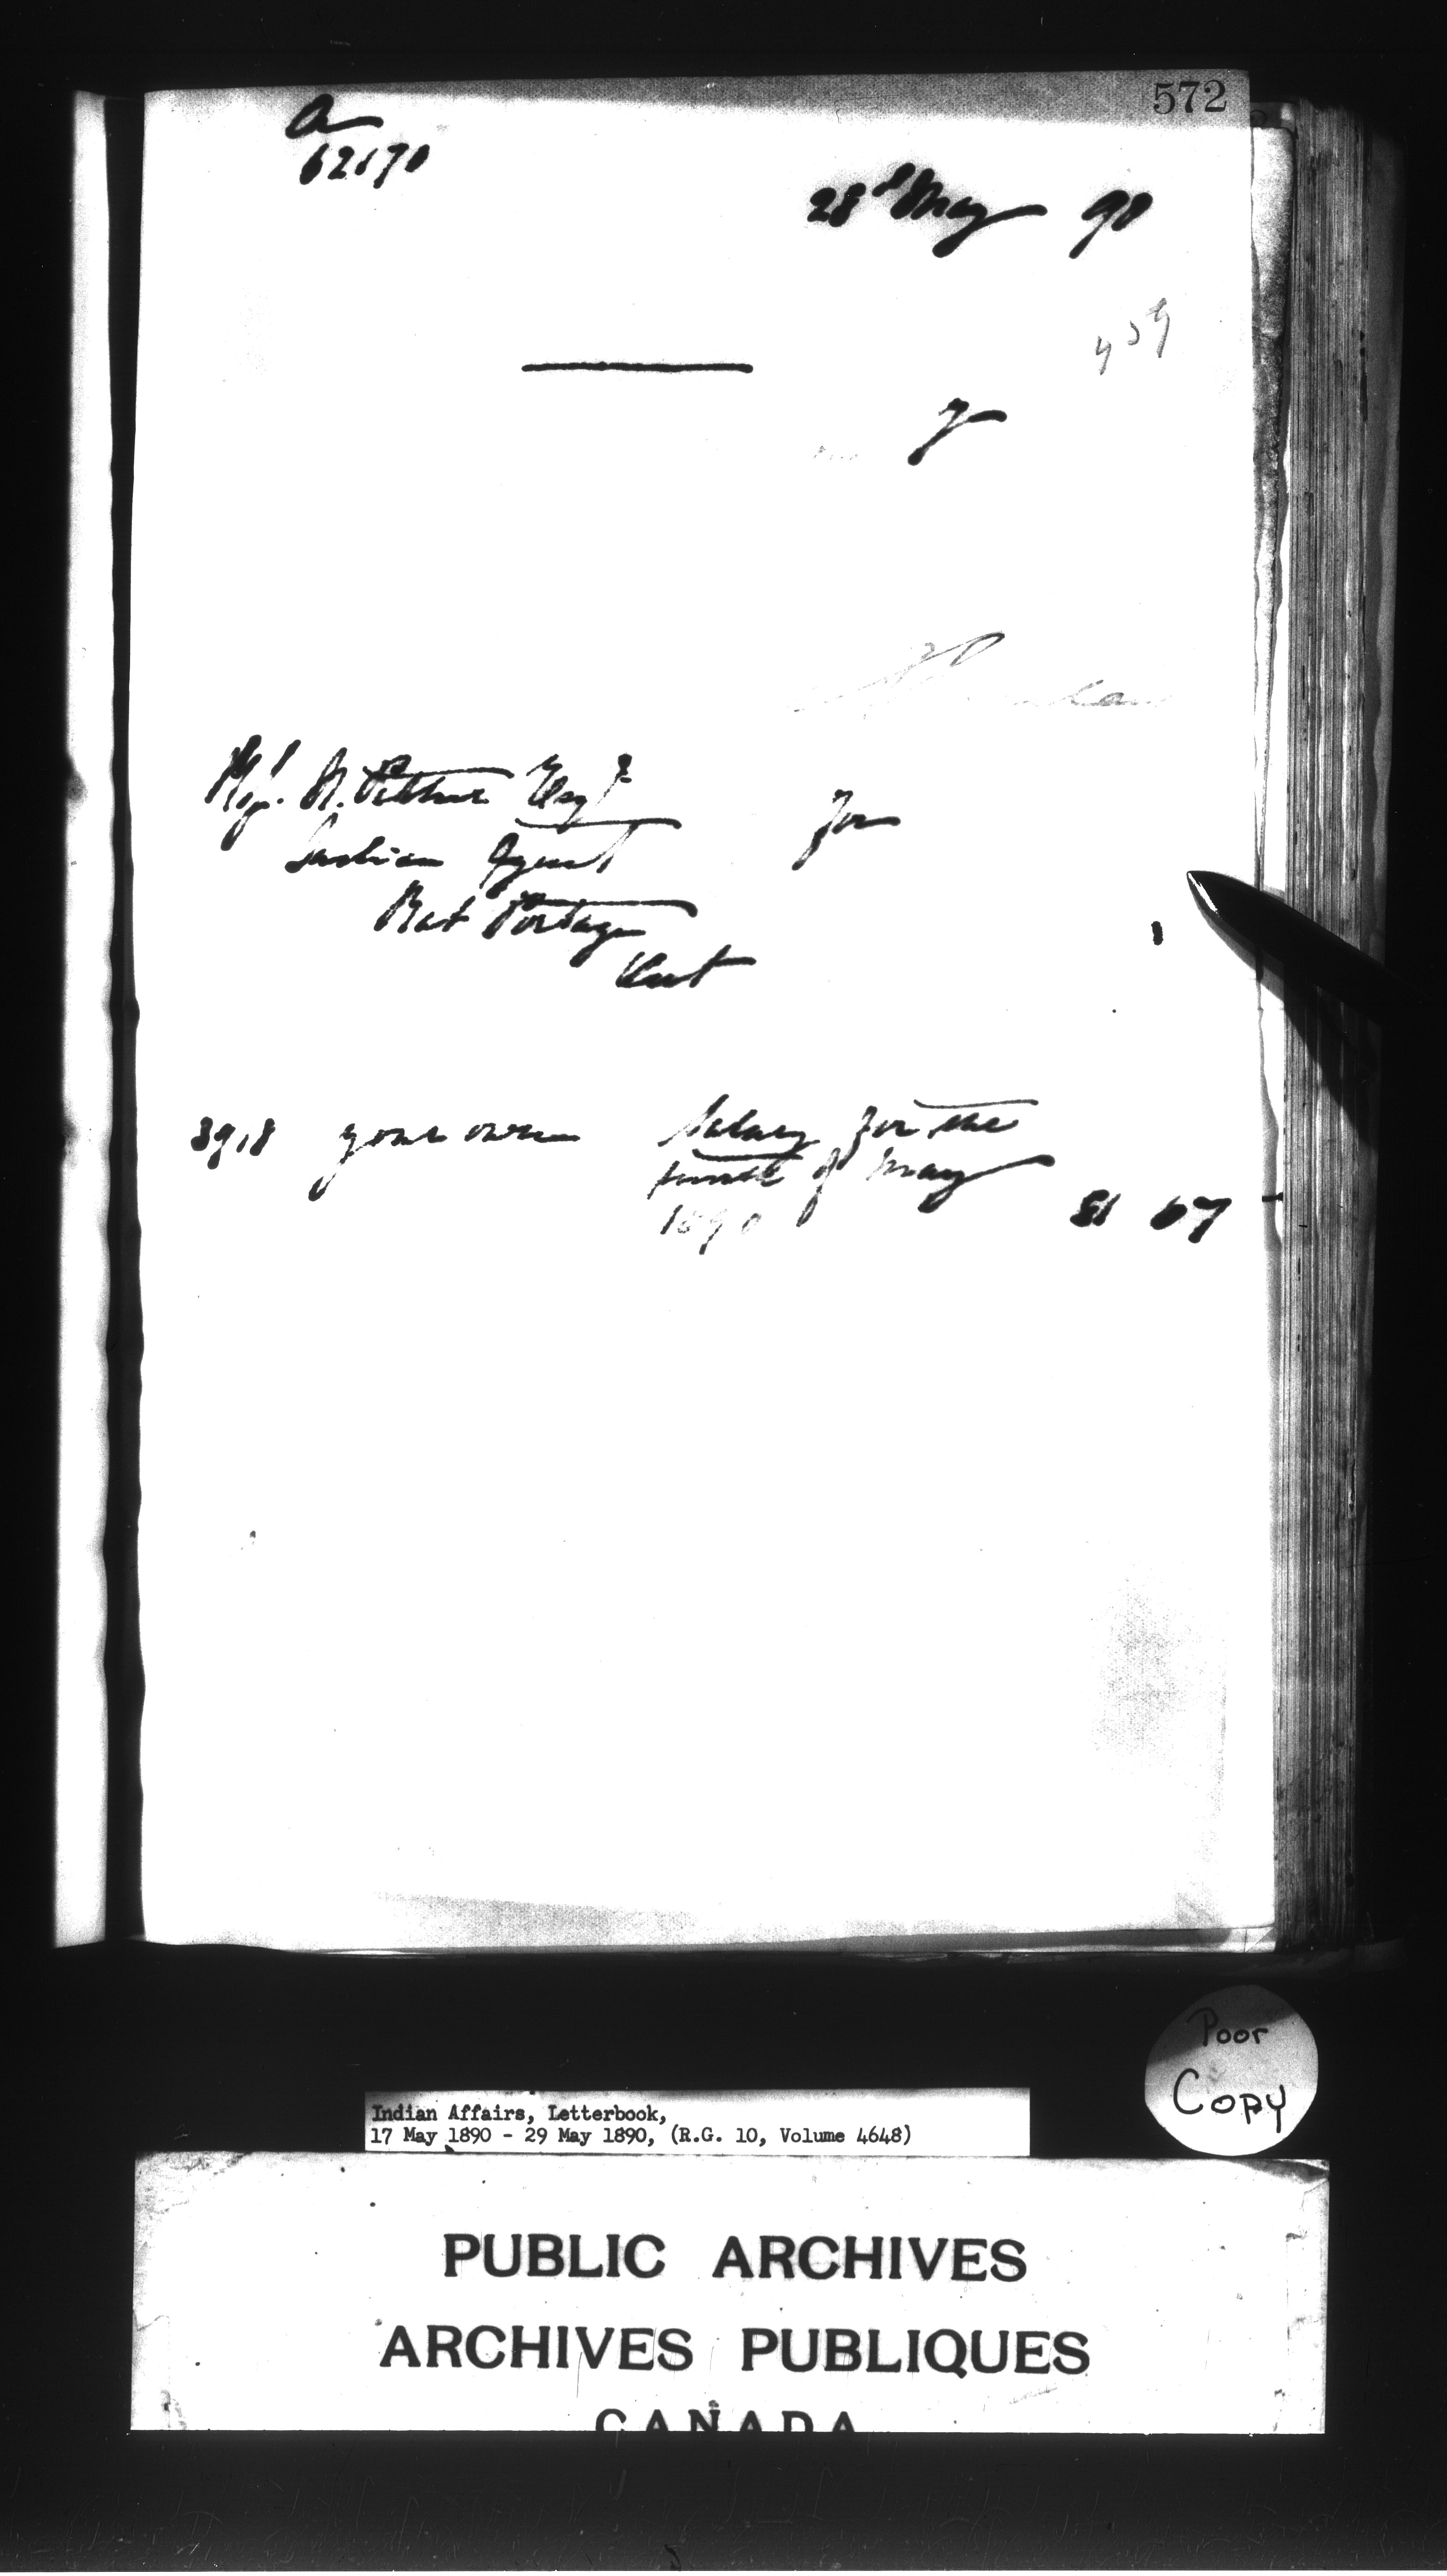 572
a
62670
28 May 90
Esqre
for
Indian Agent
Rat Portage
Ont
3918 your own Salary for the
month of May
1890 81 67
Poor
Copy
Indian Affairs, Letterbook,
17 May 1890 - 29 May 1890, (R.G. 10, Volume 4648)
PUBLIC ARCHIVES
ARCHIVES PUBLIQUES
CANADA